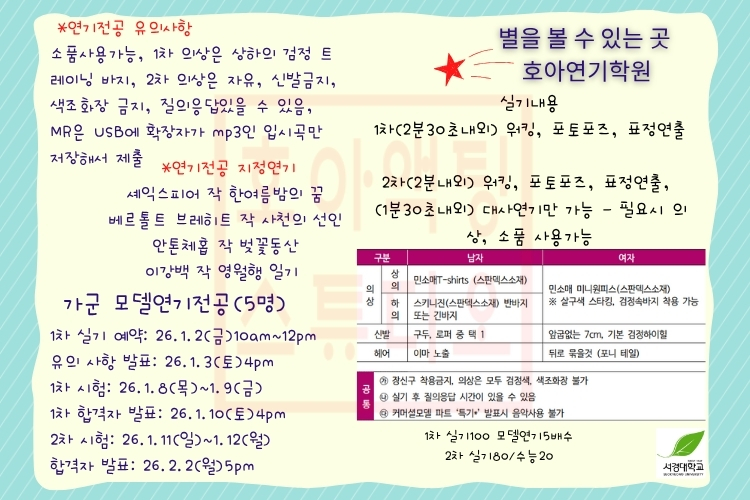 *연기전공 유의사항
소품사용가능, 1차 의상은 상하의 검정 트
레이닝 바지, 2차 의상은 자유, 신발금지,
색조화장 금지, 질의응답있을 수 있음,
MR은 USB에 확장자가 mp3인 입시곡만
저장해서 제출
*연기전공 지정연기
셰익스피어 작 한여름밤의 꿈
베르톨트 브레히트 작 사천의 선인
안톤체홉 작 벚꽃동산
이강백 작 영월행 일기
가군 모델연기전공(5명)
1차 실기 예약: 26.1.2(금)10am~12pm
유의 사항 발표: 26.1.3(토)4pm
1차 시험: 26.1.8(목)~1.9(금)
1차 합격자 발표: 26.1.10(토)4pm
2차 시험: 26.1.11(일)~1.12(월)
합격자 발표: 26.2.2(월)5pm
별을 볼 수 있는 곳
호아연기학원
실기내용
1차(2분30초내외) 워킹, 포토포즈, 표정연출
2차(2분내외) 워킹, 포토포즈, 표정연출,
(1분30초내외) 대사연기만 가능 - 필요시 의
상, 소품 사용가능
구분 남자 여자
의상 상의 민소매T-shirts (스판덱스소재) 민소매 미니원피스(스판덱스소재)
※ 살구색 스타킹, 검정속바지 착용 가능
하의 스키니진(스판덱스소재) 반바지
또는 긴바지
신발 구두, 로퍼 중 택 1 앞굽없는 7cm, 기본 검정하이힐
헤어 이마 노출 뒤로 묶을것 (포니 테일)
공통 ㉮ 장신구 착용금지, 의상은 모두 검정색, 색조화장 불가
㉯ 실기 후 질의응답 시간이 있을 수 있음
㉰ 커머셜모델 파트 '특기*' 발표시 음악사용 불가
1차 실기100 모델연기5배수
2차 실기80/수능20
서경대학교
SEOKYEONG UNIVERSITY
호아액팅
스튜디오